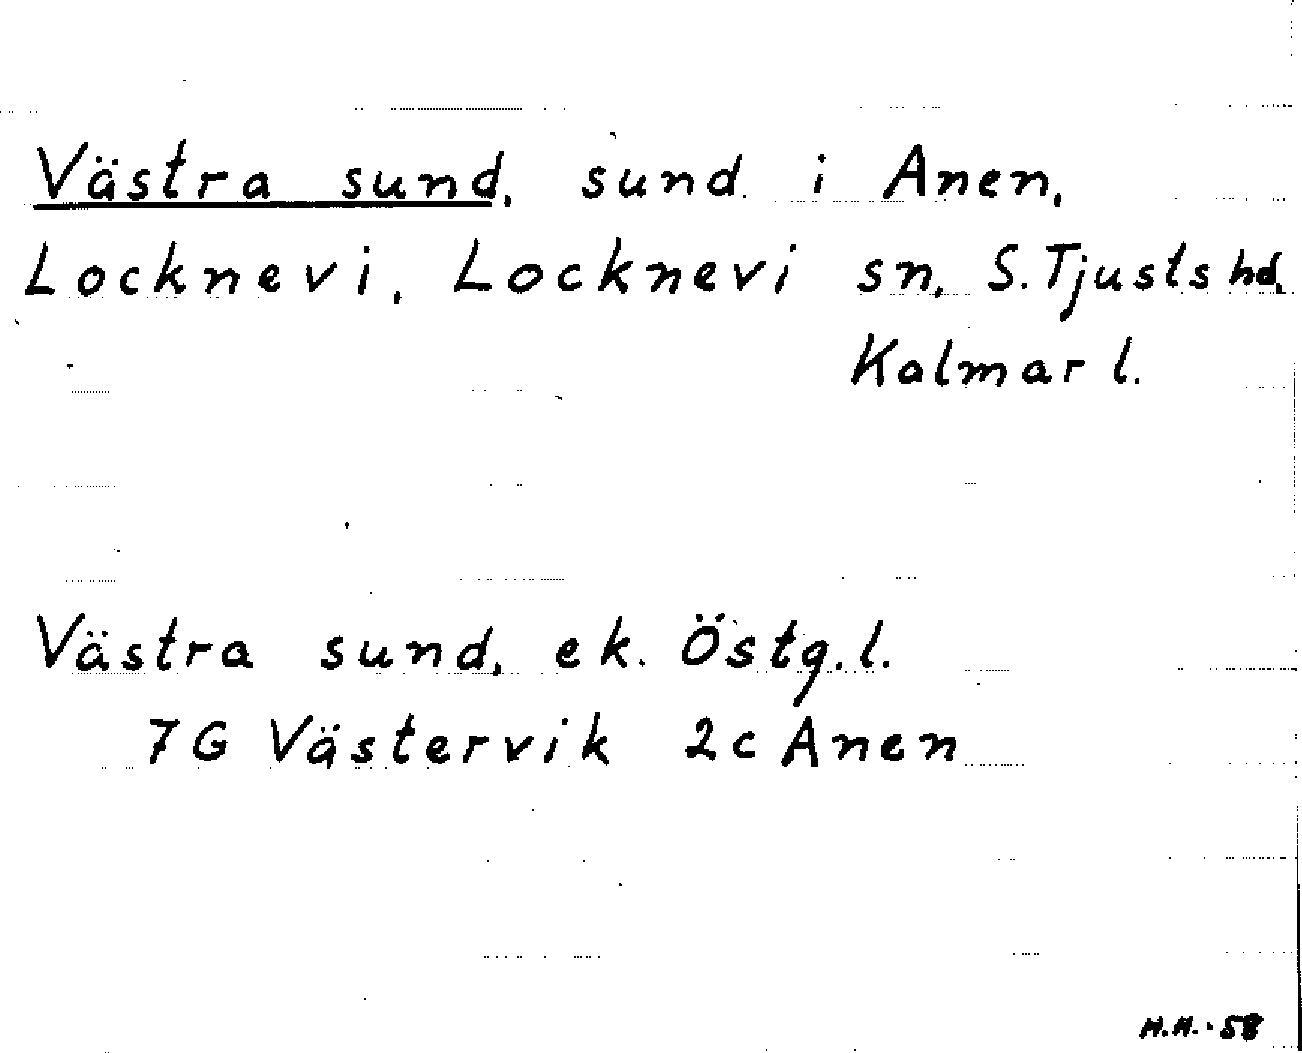 Västra sund, sund i Anen,
Locknevi, Locknevi sn, S. Tjusts hd,
Kalmar l.
Västra sund, ek. Östg. l.
7 G Västervik 2c Anen